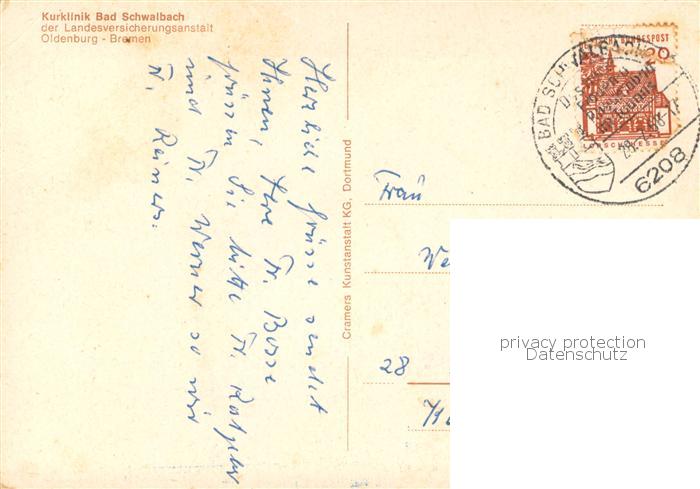 Kurklinik Bad Schwalbach
der Landesversicherungsanstalt
Oldenburg - Bremen
Herzliche Grüsse sendet
Ihnen, Ihre Fr. Bosse
grüssen Sie bitte Fr.
und Fr. Werner so wie
Fr. Reiners.
Cramers Kunstanstalt KG, Dortmund
BUNDESPOST
20
LORSCH HESSEN
BAD SCHWALBACH
6208
Frau
We
28
privacy protection
Datenschutz